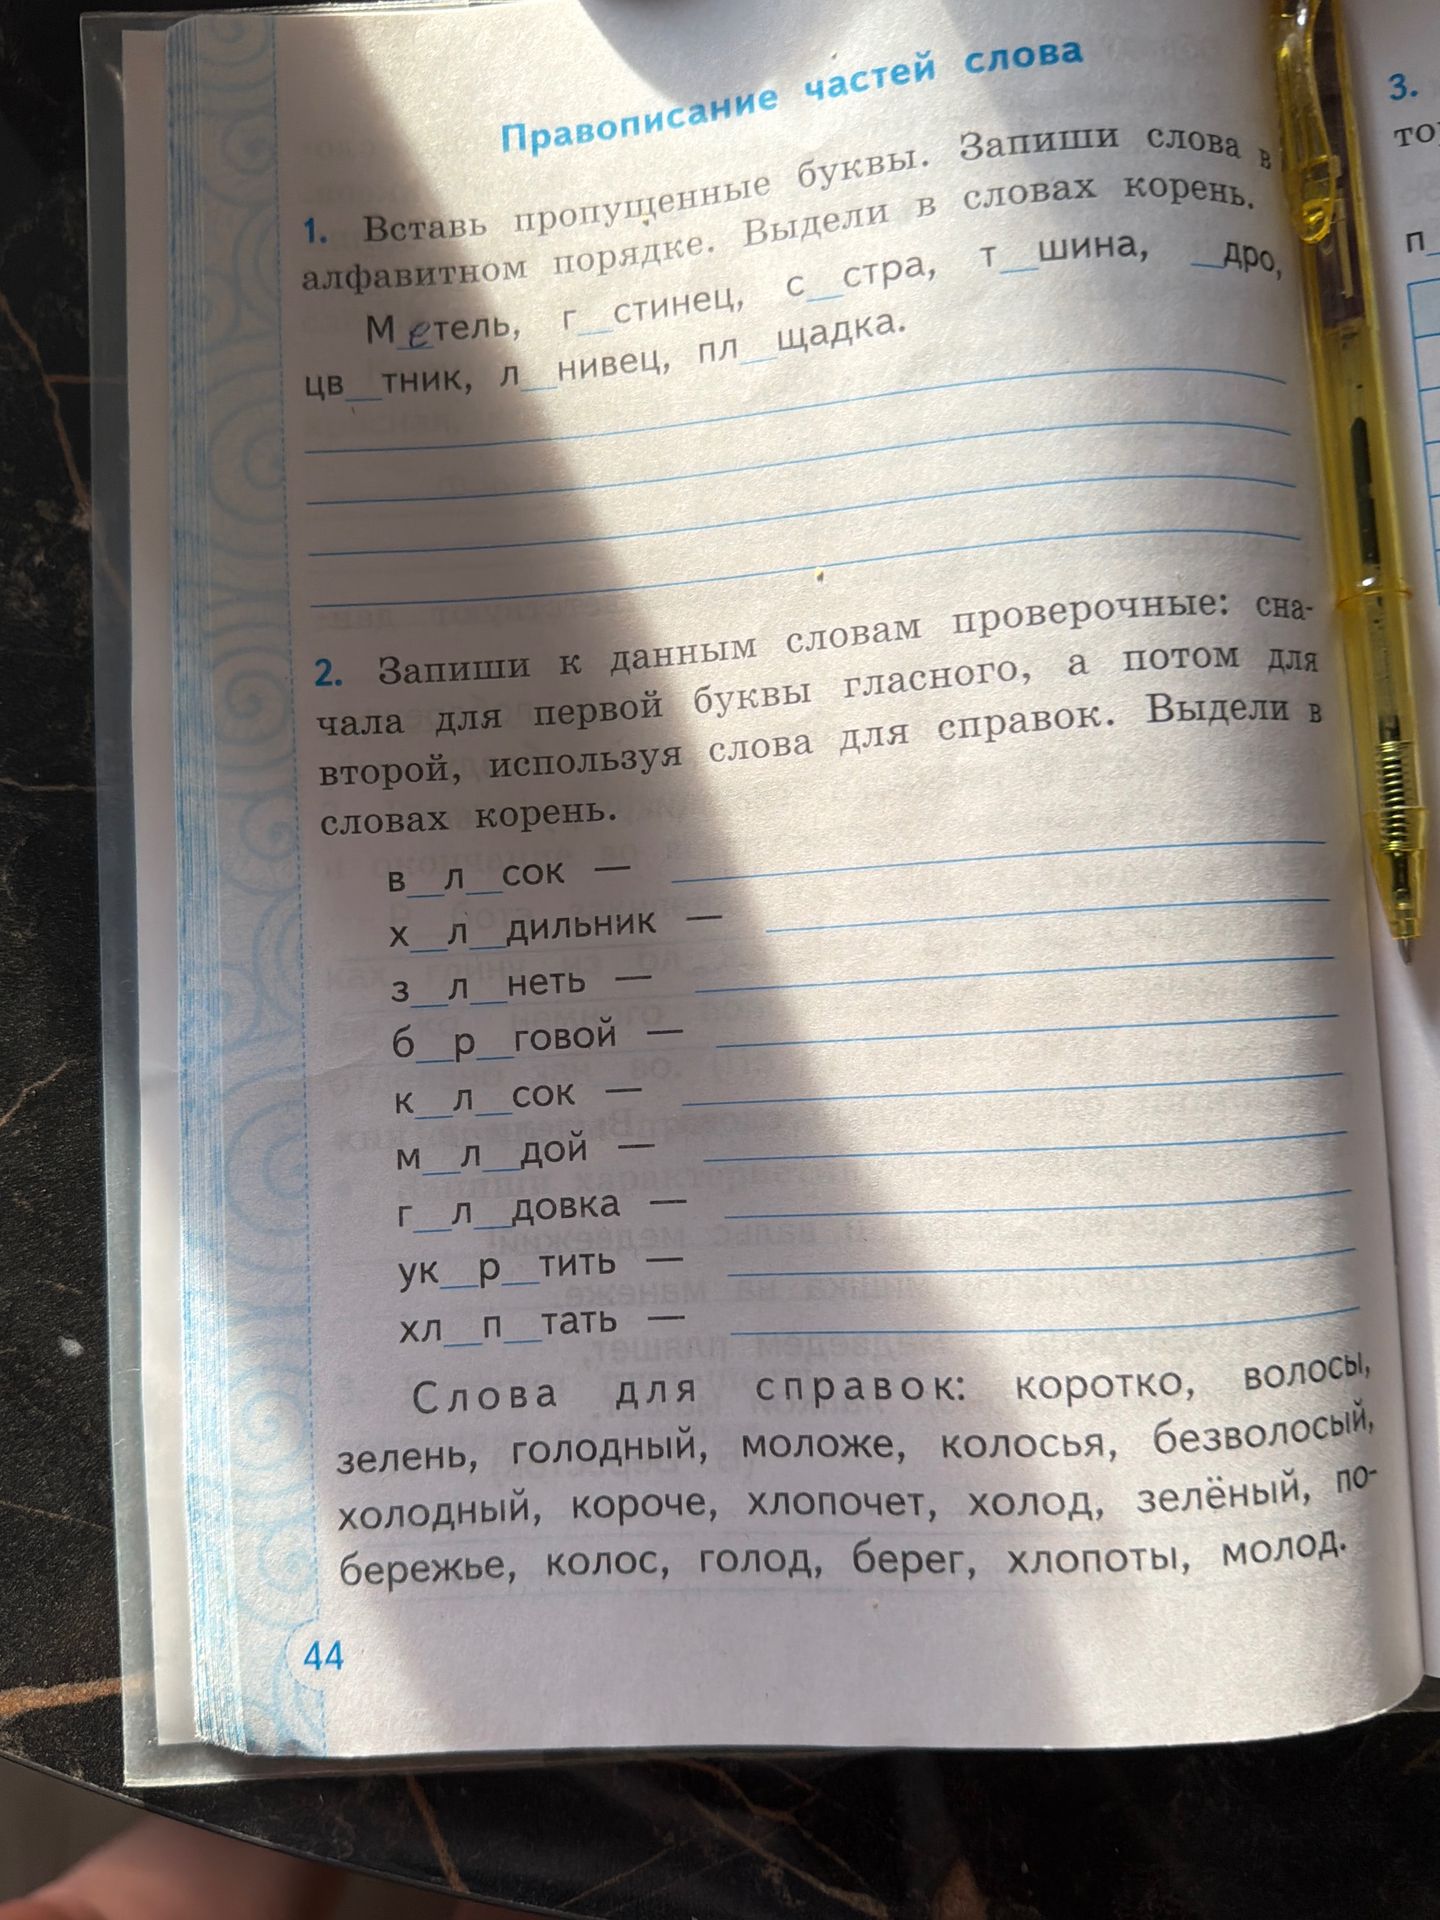 Правописание частей слова
1. Вставь пропущенные буквы. Запиши слова в
алфавитном порядке. Выдели в словах корень.
Метель, г_стинец, с_стра, т_шина, _дро,
цв_тник, л_нивец, пл_щадка.
2. Запиши к данным словам проверочные: сна-
чала для первой буквы гласного, а потом для
второй, используя слова для справок. Выдели в
словах корень.
в_л_сок —
х_л_дильник —
з_л_неть —
б_р_говой —
к_л_сок —
м_л_дой —
г_л_довка —
ук_р_тить —
хл_п_тать —
Слова для справок: коротко, волосы,
зелень, голодный, моложе, колосья, безволосый,
холодный, короче, хлопочет, холод, зелёный, по-
бережье, колос, голод, берег, хлопоты, молод.
44
3.